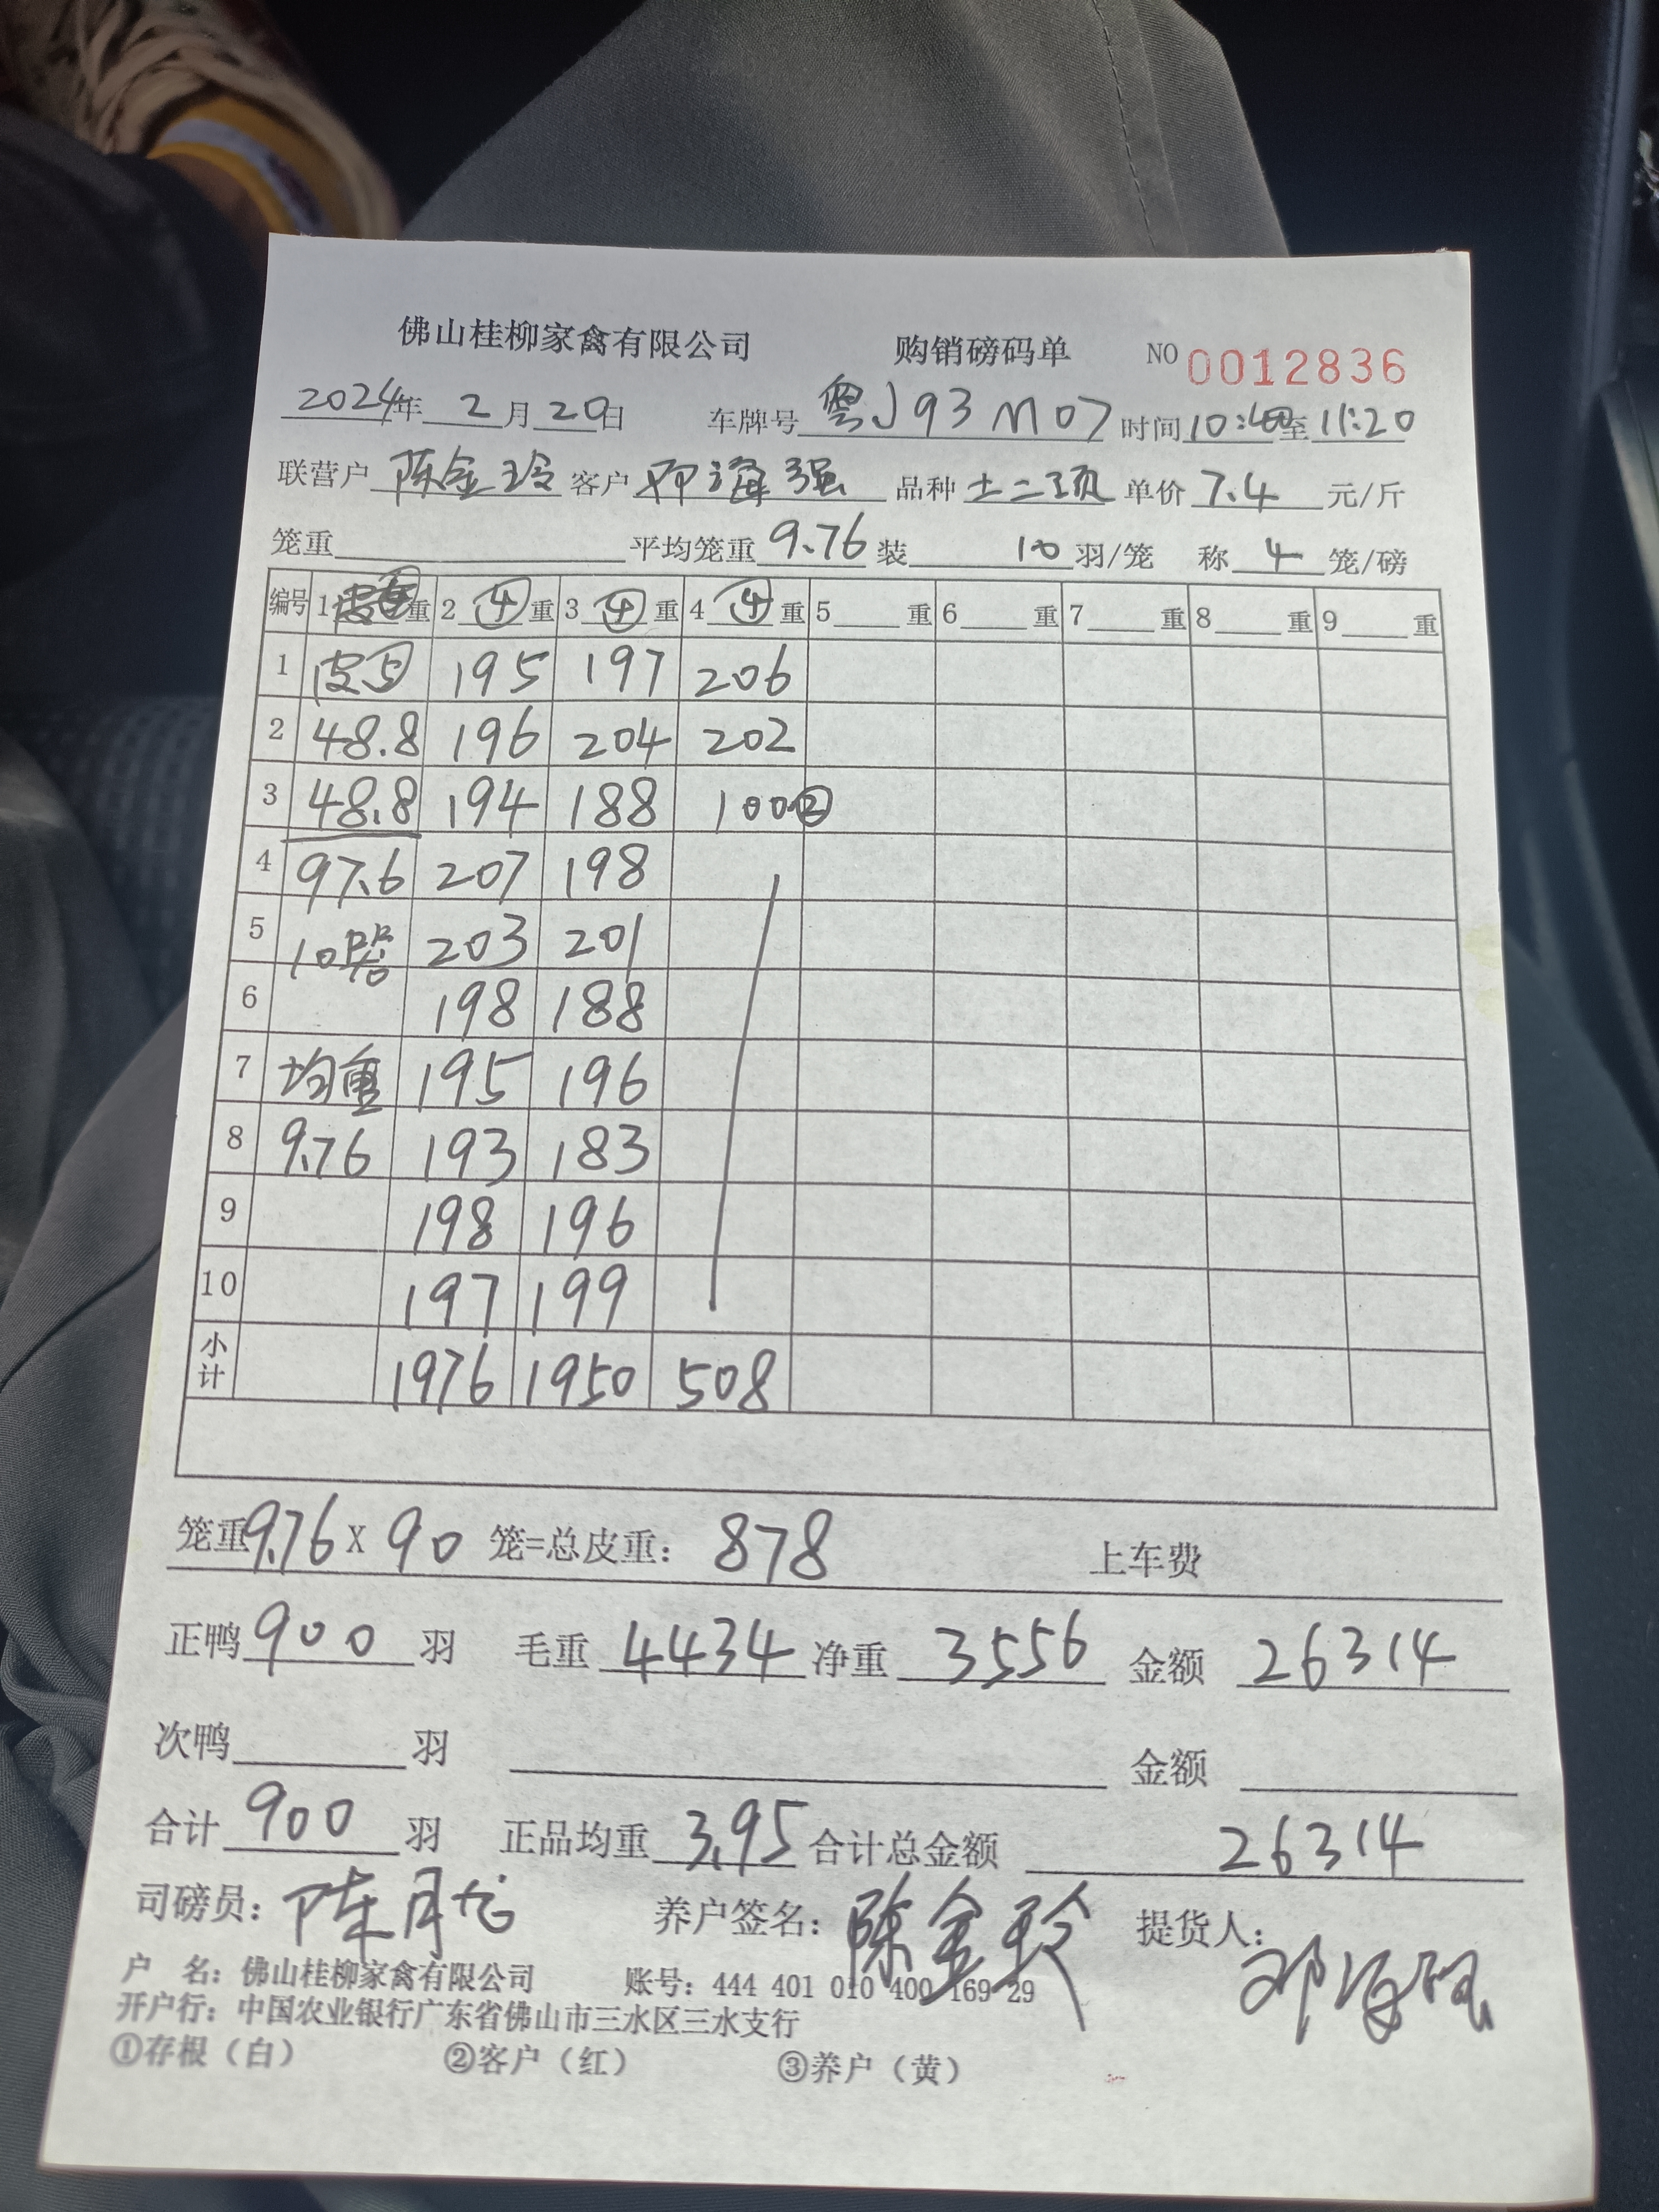 佛山桂柳家禽有限公司 购销磅码单 NO 0012836
2024年 2月20日 车牌号 粤J93M07 时间10:40至11:20
联营户 陈金玲 客户 邓海强 品种 土二项 单价 7.4 元/斤
笼重 平均笼重 9.76 装 10 羽/笼 称 4 笼/磅
编号 1 重 2 ④ 重 3 ④ 重 4 ④ 重 5 重 6 重 7 重 8 重 9 重
1 皮⑤ 195 197 206
2 48.8 196 204 202
3 48.8 194 188 100②
4 97.6 207 198
5 10 203 201
6 198 188
7 均重 195 196
8 9.76 193 183
9 198 196
10 197 199
小计 1976 1950 508
笼重9.76 X 90 笼=总皮重: 878 上车费
正鸭 900 羽 毛重 4434 净重 3556 金额 26314
次鸭 羽 金额
合计 900 羽 正品均重 3.95 合计总金额 26314
司磅员: 陈 养户签名: 陈金玲 提货人: 邓海强
户 名: 佛山桂柳家禽有限公司 账号: 444 401 010 400 169 29
开户行: 中国农业银行广东省佛山市三水区三水支行
①存根(白) ②客户(红) ③养户(黄)